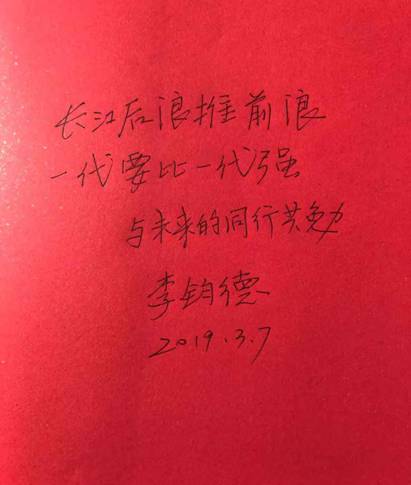 长江后浪推前浪
一代要比一代强
与未来的同行共勉
李钧德
2019.3.7